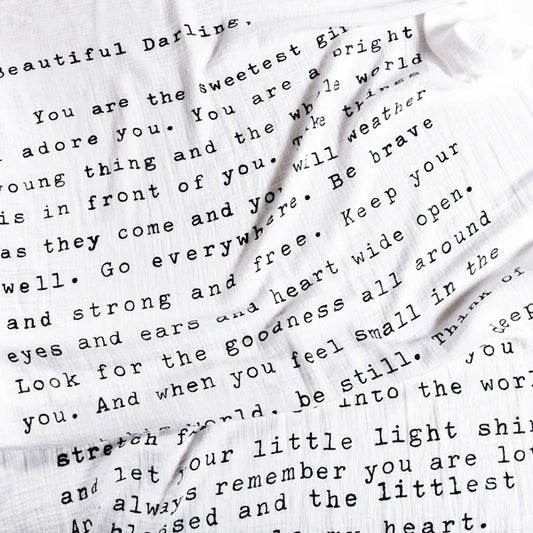 Beautiful Darling,
You are the sweetest
I adore you. You are a bright
young thing and the whole world
is in front of you. Take things
as they come and you will weather
well. Go everywhere. Be brave
and strong and free. Keep your
eyes and ears and heart wide open.
Look for the goodness all around
you. And when you feel small in the
world, be still. Think of
deep you
stretch into the
and let your little light
always remember you are
and the littlest
my heart.